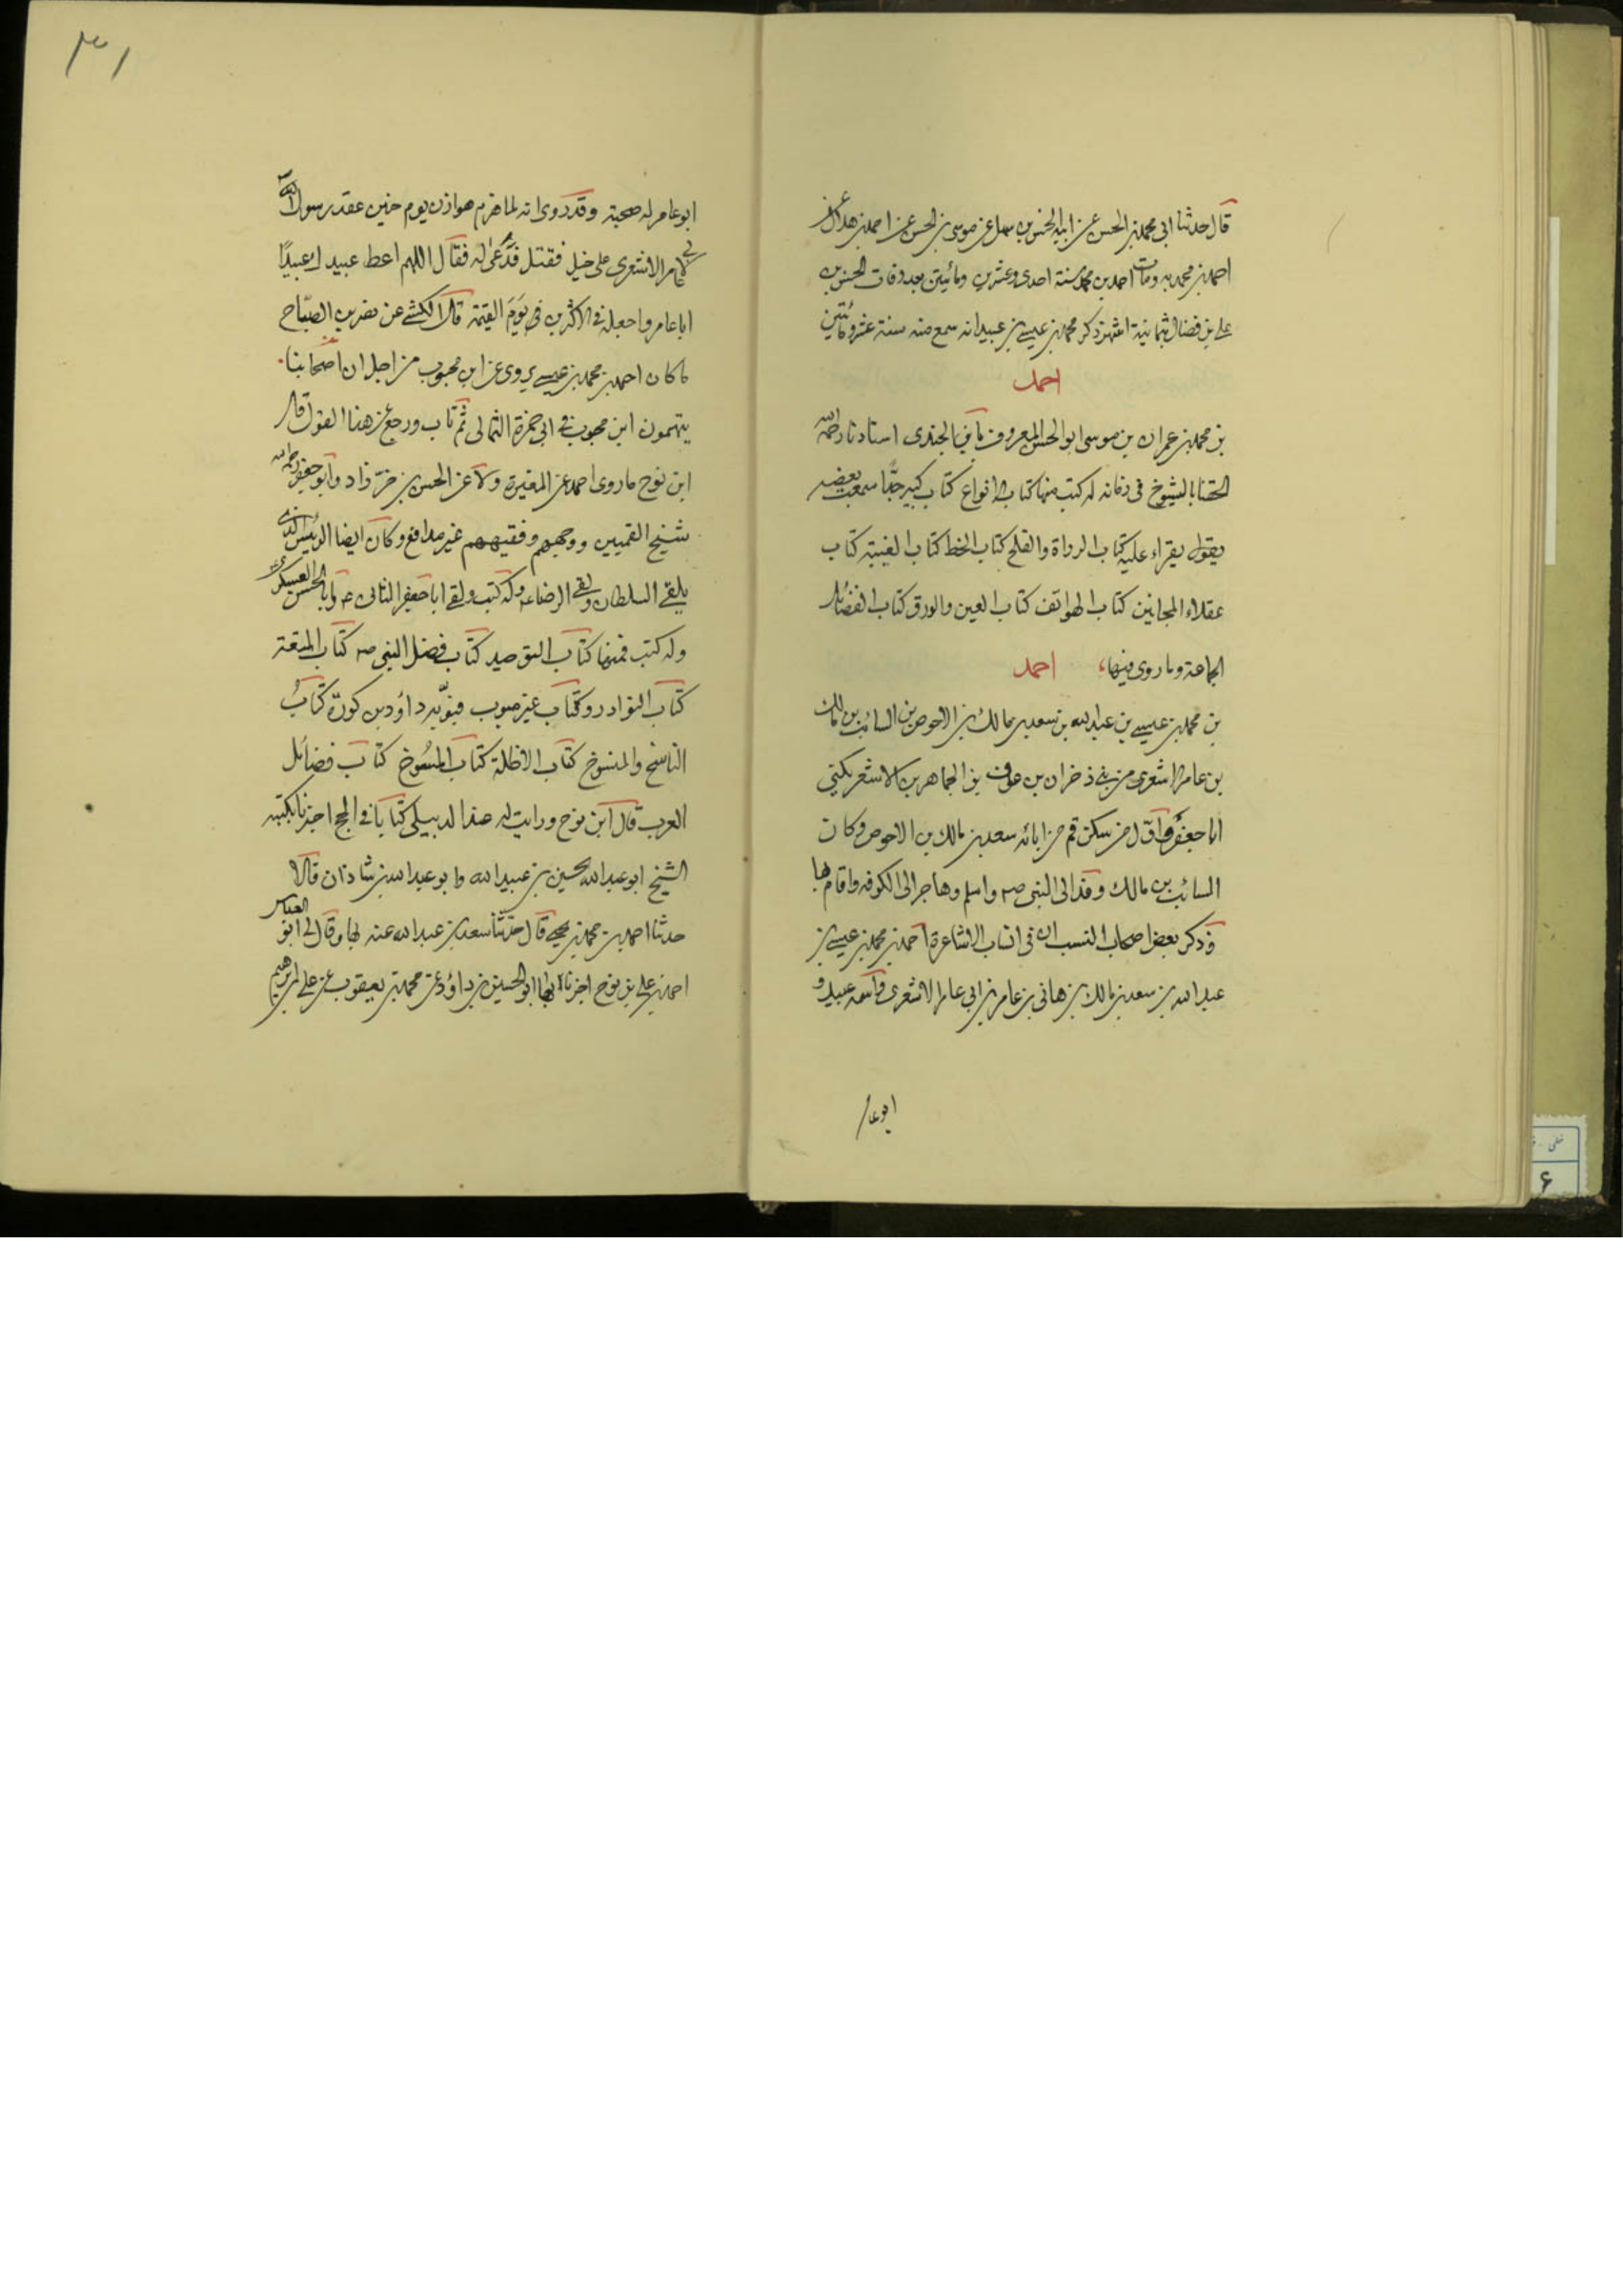 قال حدثنا ابي محمد بن الحسن عن ابيه الحسن بن سهل عن موسى بن الحسن عن احمد بن هلال عن
احمد بن محمد به ومات احمد بن محمد سنة احدى وعشرين ومائيتين بعد وفات الحسن بن
علي بن فضال بثمانية اشهر ذكر محمد بن عيسى بن عبيد انه سمع منه سنة عشر ومائتين
احمد
بن محمد بن عمران بن موسى ابو الحسن المعروف بابن الجندى استادنا رحمه الله
الحقنا بالشيوخ فى زمانه له كتب منها كتاب الانواع كتاب كبير جدا سمعت بعضه
يقول يقراء عليه كتاب الرواة والفلج كتاب الخط كتاب الغيبة كتاب
عقلاء المجانين كتاب الهواتف كتاب العين والورق كتاب الفضائل
الجماعة وما روى فيها، احمد
بن محمد بن عيسى بن عبد الله بن سعد بن مالك بن الاحوص بن السائب بن مالك
بن عامر الاشعرى من بنى ذخران بن عوف بن الجماهر بن الاشعر يكنى
ابا جعفر واول من سكن قم من ابائه سعد بن مالك بن الاحوص وكان
السائب بن مالك وفد الى النبى ص واسلم وهاجر الى الكوفه واقام بها
وذكر بعض اصحاب النسب ان فى انساب الاشاعرة احمد بن محمد بن عيسى بن
عبد الله بن سعد بن مالك بن هانى بن عامر بن ابى عامر الاشعرى واسمه عبيد و
ابو عامر
٣١
ابو عامر له صحبة وقد روى انه لما هزم هوازن يوم حنين عقد رسول الله ص
لابى عامر الاشعرى على خيل فقتل فدعى له فقال اللهم اعط عبيدك عبيدا
ابا عامر واجعله فى الاكثرين فى يوم القيمة قال الكشى عن نصر بن الصباح
ما كان احمد بن محمد بن عيسى يروى عن ابن محبوب من اجل ان اصحابنا
يتهمون ابن محبوب فى ابى حمزة الثمالى ثم تاب ورجع عن هذا القول قال
ابن نوح ما روى احمد عن المغيرة ولا عن الحسن بن خرزاد وابو جعفر رحمه الله
شيخ القميين ووجههم وفقيههم غير مدافع وكان ايضا الرئيس الذى
يلقى السلطان ولقى الرضا ع وله كتب ولقى ابا جعفر الثانى ع وابا الحسن العسكرى ع
وله كتب فمنها كتاب التوحيد كتاب فضل النبى ص كتاب المتعة
كتاب النوادر وكتاب غير مبوب فبوبه داود بن كورة كتاب
الناسخ والمنسوخ كتاب الاظلة كتاب المسوخ كتاب فضائل
العرب قال ابن نوح ورايت له عند الدبيلى كتابا فى الحج اخبرنا بكتبه
الشيخ ابو عبد الله الحسين بن عبيد الله وابو عبد الله بن شاذان قالا
حدثنا احمد بن محمد بن يحيى قال حدثنا سعد بن عبد الله عنه بها وقال لى ابو العباس
احمد بن على بن نوح اخبرنا بها ابو الحسين بن داود عن محمد بن يعقوب عن على بن ابرهيم